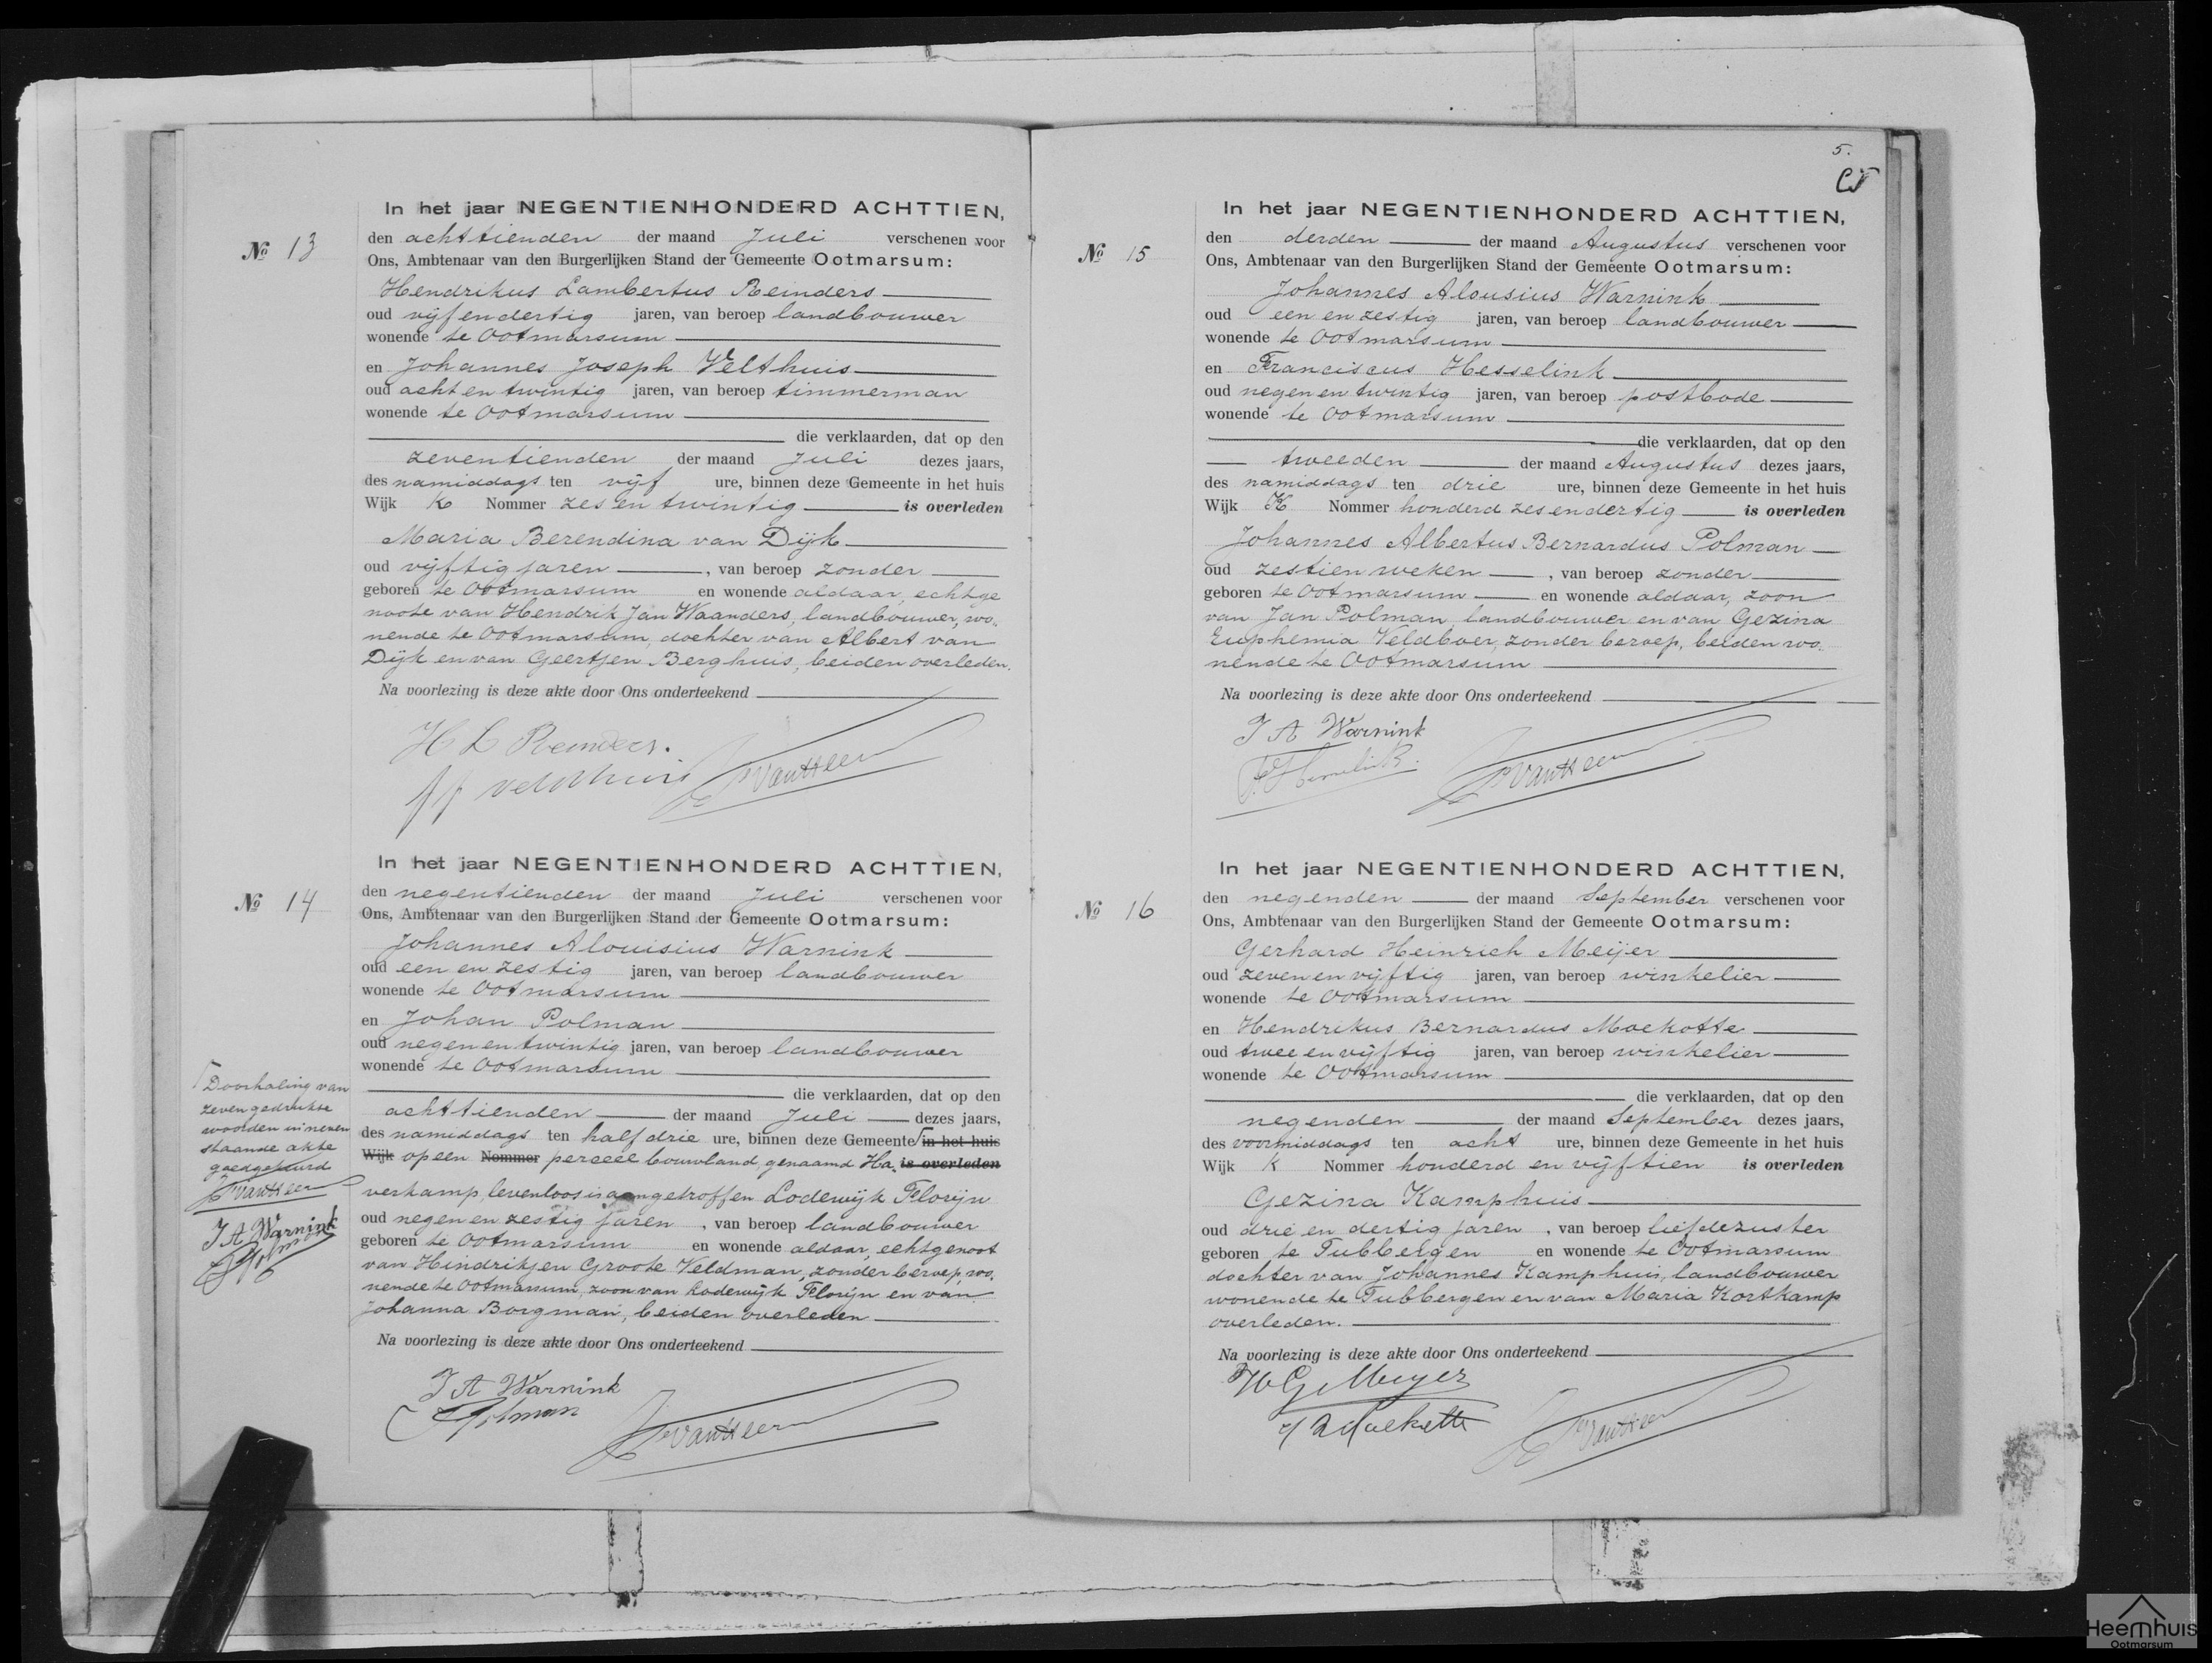 No 13
In het jaar NEGENTIENHONDERD ACHTTIEN,
den achttienden der maand Juli verschenen voor
Ons, Ambtenaar van den Burgerlijken Stand der Gemeente Ootmarsum:
Hendrikus Lambertus Reinders
oud vijfendertig jaren, van beroep landbouwer
wonende te Ootmarsum
en Johannes Joseph Velthuis
oud acht en twintig jaren, van beroep timmerman
wonende te Ootmarsum
die verklaarden, dat op den
zeventienden der maand Juli dezes jaars,
des namiddags ten vijf ure, binnen deze Gemeente in het huis
Wijk K Nommer zes en twintig is overleden
Maria Berendina van Dijk
oud vijftig jaren, van beroep zonder
geboren te Ootmarsum en wonende aldaar, echtge
noote van Hendrik Jan Waanders, landbouwer, wo„
nende te Ootmarsum, dochter van Albert van
Dijk en van Geertjen Berghuis, beiden overleden.
Na voorlezing is deze akte door Ons onderteekend
H L Reinders.
J J Velthuis
No 14
In het jaar NEGENTIENHONDERD ACHTTIEN,
den negentienden der maand Juli verschenen voor
Ons, Ambtenaar van den Burgerlijken Stand der Gemeente Ootmarsum:
Johannes Alouisius Warnink
oud een en zestig jaren, van beroep landbouwer
wonende te Ootmarsum
en Johan Polman
oud negen en twintig jaren, van beroep landbouwer
wonende te Ootmarsum
die verklaarden, dat op den
achttienden der maand Juli dezes jaars,
des namiddags ten half drie ure, binnen deze Gemeente in het huis
Wijk op een Nommer perceel bouwland, genaamd Ha, is overleden
verkamp, levenloos is aangetroffen Lodewijk Florijn
oud negen en zestig jaren, van beroep landbouwer
geboren te Ootmarsum en wonende aldaar, echtgenoot
van Hindrikjen Groote Veldman, zonder beroep, wo,
nende te Ootmarsum, zoon van Lodewijk Florijn en van
Johanna Borgman, beiden overleden
Na voorlezing is deze akte door Ons onderteekend
J A Warnink
J Polman
Doorhaling van
zeven gedrukte
woorden in neven
staande akte
goedgekeurd
J A Warnink
J Polman
5.
No 15
In het jaar NEGENTIENHONDERD ACHTTIEN,
den derden der maand Augustus verschenen voor
Ons, Ambtenaar van den Burgerlijken Stand der Gemeente Ootmarsum:
Johannes Alousius Warnink
oud een en zestig jaren, van beroep landbouwer
wonende te Ootmarsum
en Franciscus Hesselink
oud negen en twintig jaren, van beroep postbode
wonende te Ootmarsum
die verklaarden, dat op den
tweeden der maand Augustus dezes jaars,
des namiddags ten drie ure, binnen deze Gemeente in het huis
Wijk K Nommer honderd zesendertig is overleden
Johannes Albertus Bernardus Polman
oud zestien weken, van beroep zonder
geboren te Ootmarsum en wonende aldaar, zoon
van Jan Polman, landbouwer en van Gezina
Euphemia Veldboer, zonder beroep, beiden wo.
nende te Ootmarsum
Na voorlezing is deze akte door Ons onderteekend
J A Warnink
No 16
In het jaar NEGENTIENHONDERD ACHTTIEN,
den negenden der maand September verschenen voor
Ons, Ambtenaar van den Burgerlijken Stand der Gemeente Ootmarsum:
Gerhard Heinrich Meijer
oud zeven en vijftig jaren, van beroep winkelier
wonende te Ootmarsum
en Hendrikus Bernardus Moekotte
oud twee en vijftig jaren, van beroep winkelier
wonende te Ootmarsum
die verklaarden, dat op den
negenden der maand September dezes jaars,
des voormiddags ten acht ure, binnen deze Gemeente in het huis
Wijk K Nommer honderd en vijftien is overleden
Gezina Kamphuis
oud drie en dertig jaren, van beroep liefdezuster
geboren te Tubbergen en wonende te Ootmarsum
dochter van Johannes Kamphuis, landbouwer
wonende te Tubbergen en van Maria Kortkamp
overleden.
Na voorlezing is deze akte door Ons onderteekend
Heemhuis
Ootmarsum